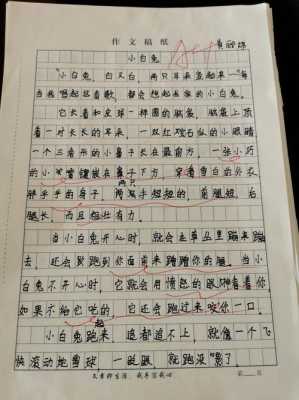 作文稿纸
A++
小白兔
“小白兔，白又白，两只耳朵竖起来…”每
当我唱起这首歌，都会想起我家的小白兔。
它长着和皮球一样圆的脑袋，脑袋上顶
着一对长长的耳朵，一双红砖石似的小眼睛
一个三角形的小鼻子长在最前方，一张小巧
的小嘴镶嵌在鼻子下方，穿着雪白的外衣
胖乎乎的身子，两双手短短的，前腿短，后
两只
腿长，而且粗壮有力。
当小白兔开心时，就会在草丛里蹦来跳
去，还会爬跑到你面前来蹭蹭你的腿。当小
白兔不开心时，它就会用愤怒的眼神看着你
如果不给它吃的，它还会跑过来咬你一口。
小白兔跑起来，追都追不上，就像一个飞
快滚动地雪球，一眨眼，就跑没“影”了。
第 页